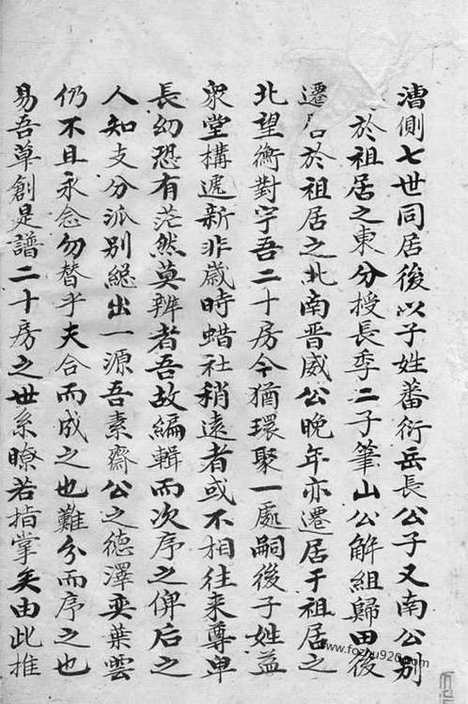 漕側七世同居後以子姓蕃衍岳長公子又南公別
於祖居之東分授長季二子筆山公解組歸田後
遷居於祖居之北南晋威公晚年亦遷居于祖居之
北望衡對宇吾二十房今猶環聚一處嗣後子姓益
衆堂構遞新非歲時蜡社稍遠者或不相往来尊卑
長幼恐有茫然莫辨者吾故編輯而次序之俾后之
人知支分派別緫出一源吾素齋公之德澤奕葉雲
仍不且永念勿替乎夫合而成之也難分而序之也
易吾草創是譜二十房之世系瞭若指掌矣由此推
www.fozhu920.com